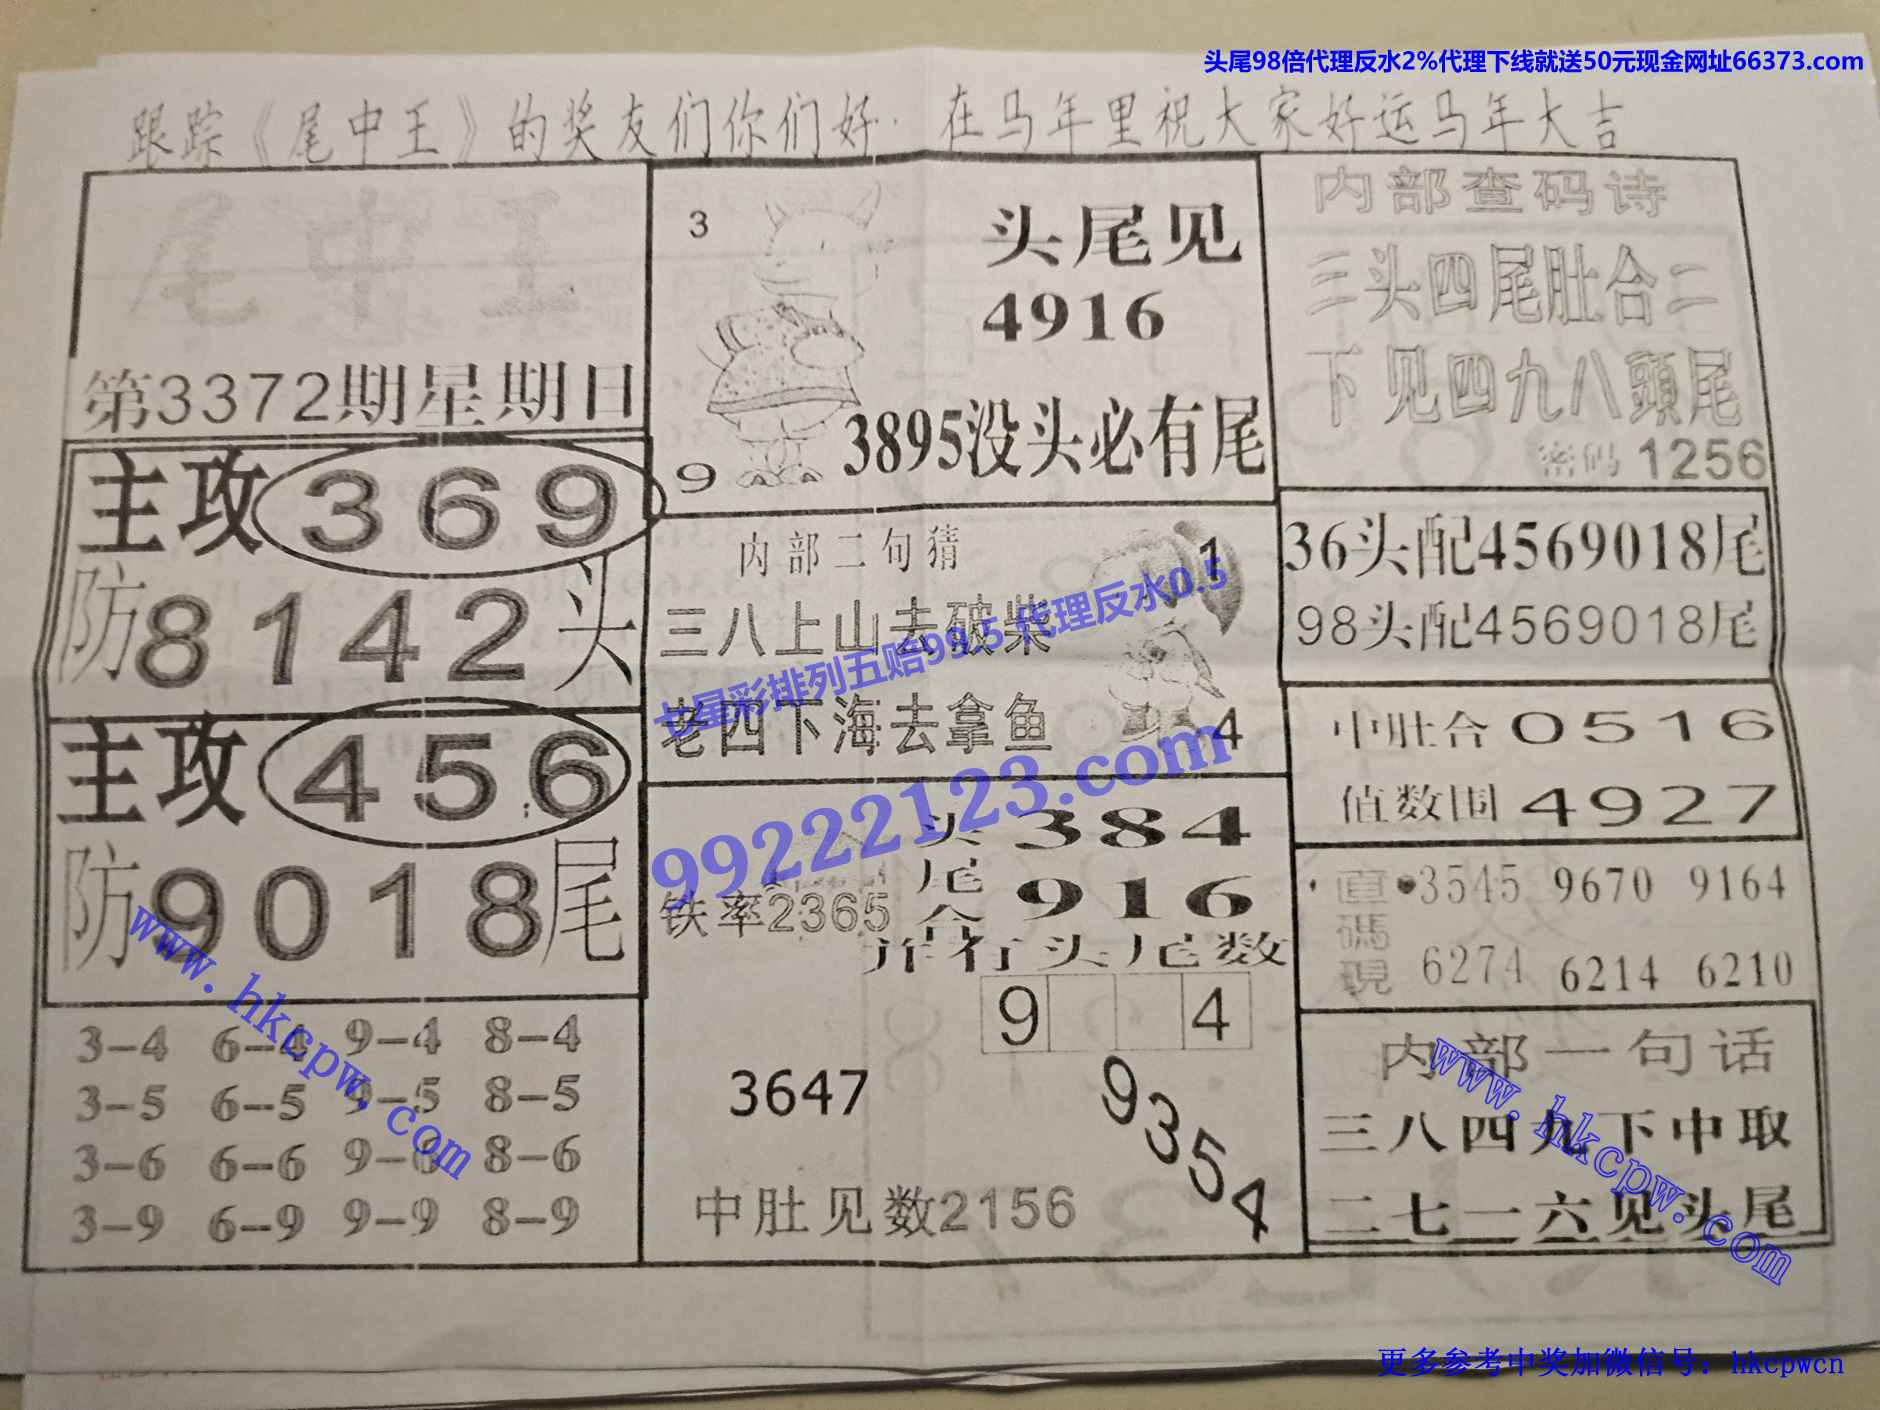 头尾98倍代理反水2%代理下线就送50元现金网址66373.com
跟踪《尾中王》的奖友们你们好. 在马年里祝大家好运马年大吉
尾中王
第3372期星期日
主攻 369
防8142头
主攻 456
防9018尾
3-4 6-4 9-4 8-4
3-5 6-5 9-5 8-5
3-6 6-6 9-6 8-6
3-9 6-9 9-9 8-9
3
头尾见
4916
3895没头必有尾
9
内部二句猜
1
三八上山去破柴
老四下海去拿鱼
4
七星彩排列五赔99.5 代理反水0.5
99222123.com
头尾合
384
916
铁率2365
并行头尾数
9 4
3647
9354
中肚见数2156
内部查码诗
三头四尾肚合二
下见四九八頭尾
密码 1256
36头配4569018尾
98头配4569018尾
中肚合0516
值数围4927
直碼現
3545 9670 9164
6274 6214 6210
内部一句话
三八四九下中取
二七一六见头尾
www.hkcpw.com
www.hkcpw.com
更多参考中奖加微信号：hkcpwcn